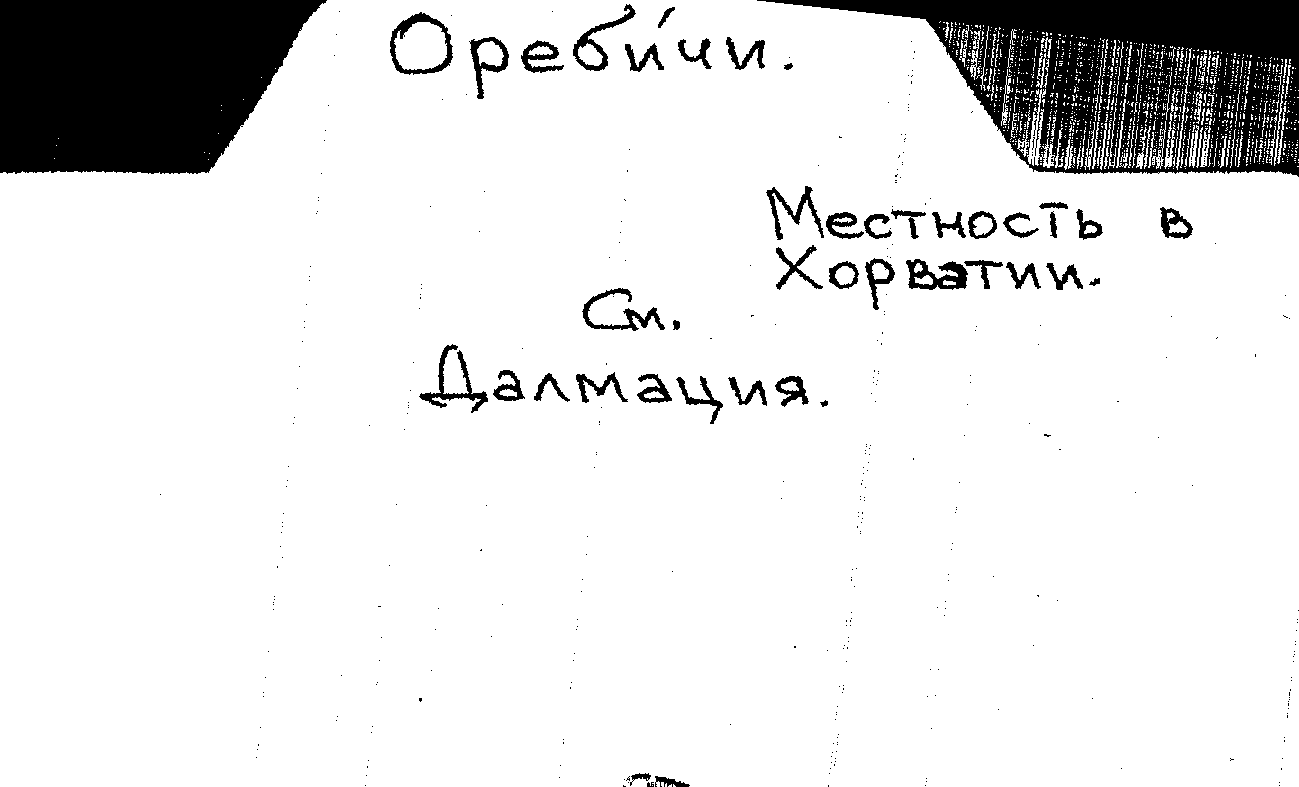 Ореби́чи.
Местность в
Хорватии.
См.
Далмация.